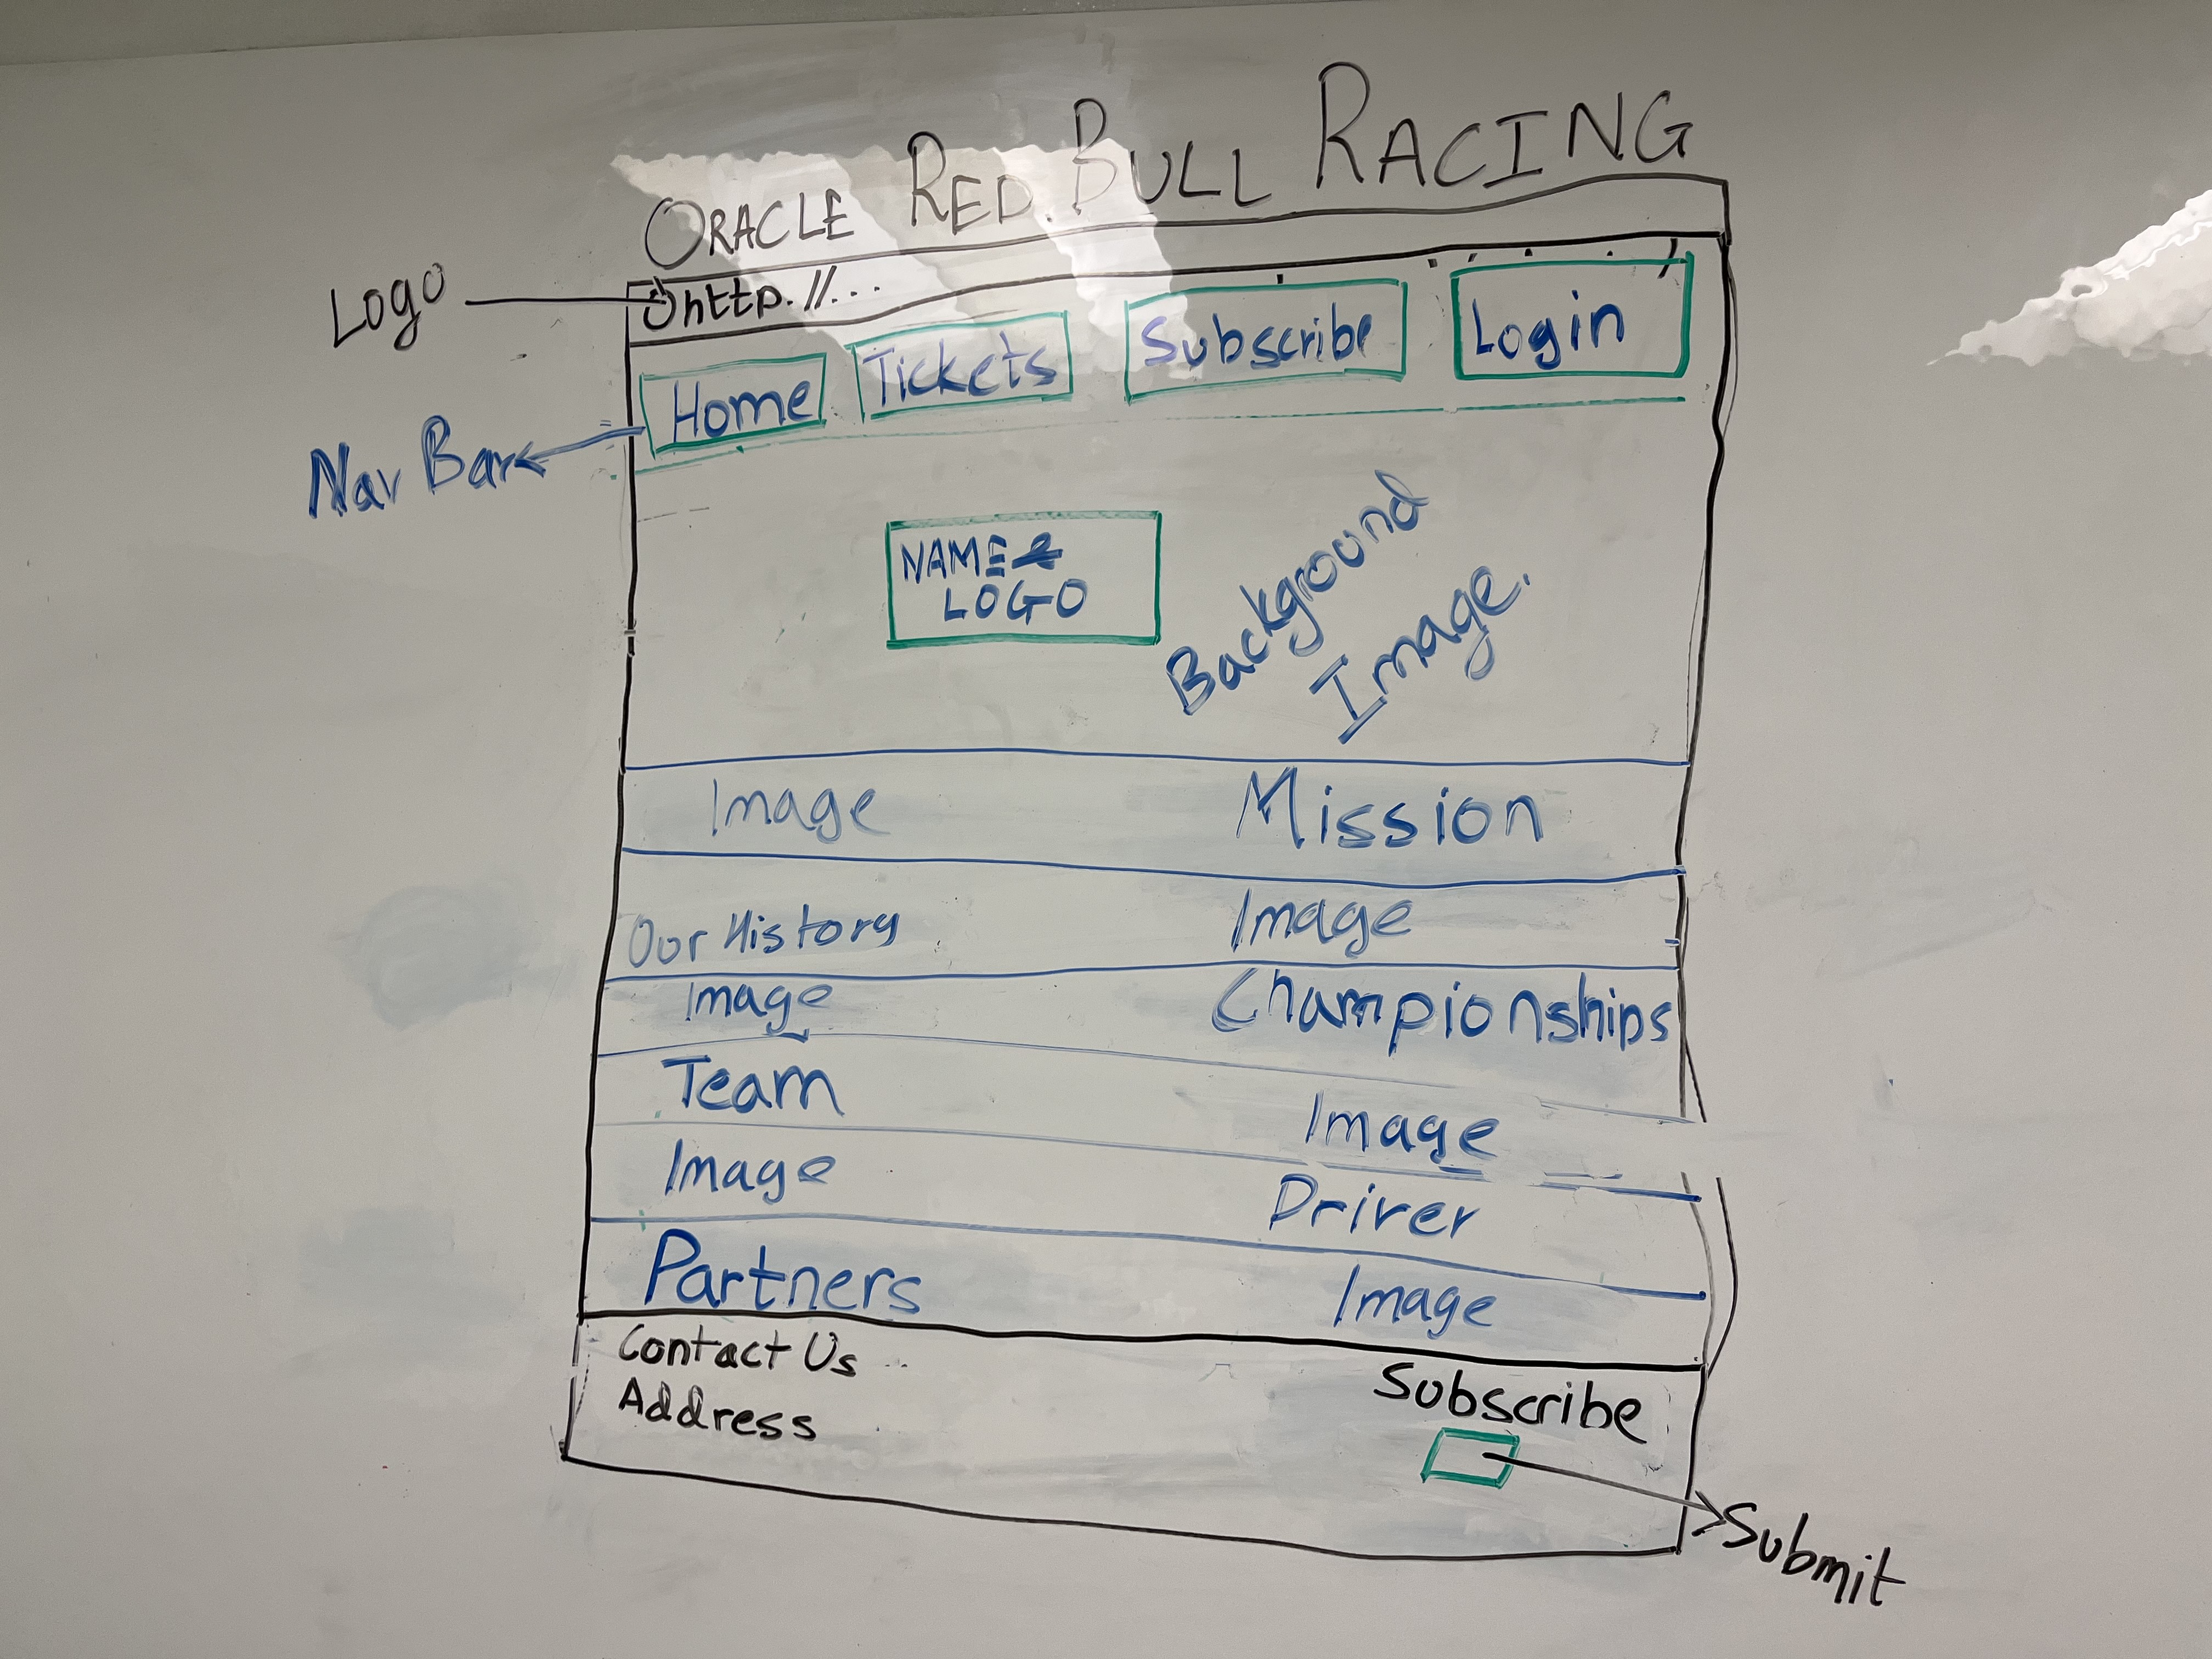 ORACLE RED BULL RACING
Logo
http://...
Home Tickets Subscribe Login
Nav Bar
NAME &
LOGO
Background
Image.
Image Mission
Our History Image
Image Championships
Team Image
Image Driver
Partners Image
Contact Us
Address
Subscribe
Submit